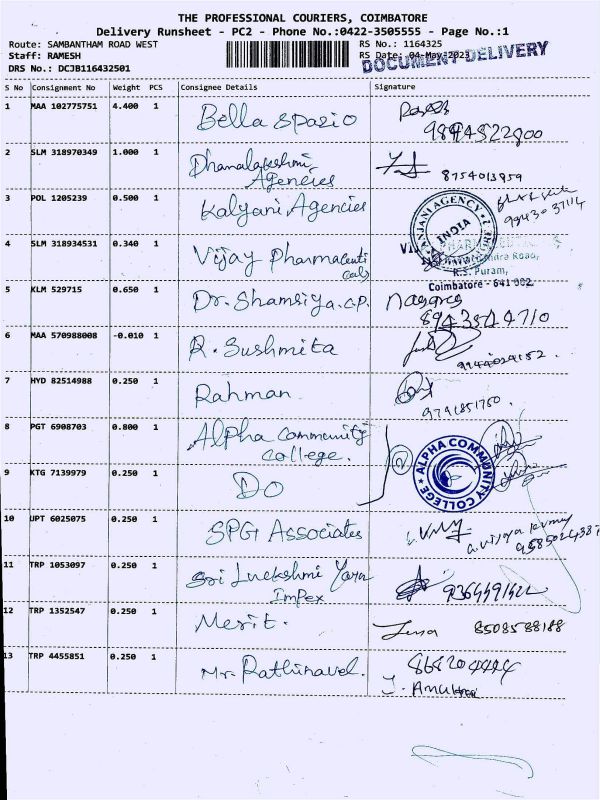 THE PROFESSIONAL COURIERS, COIMBATORE
Delivery Runsheet - PC2 - Phone No.:0422-3505555 - Page No.:1
Route: SAMBANTHAM ROAD WEST RS No.: 1164325
Staff: RAMESH RS Date: 04-May-2023
DOCUMENT DELIVERY
DRS No.: DCJB116432501
S No Consignment No Weight PCS Consignee Details Signature
1 MAA 102775751 4.400 1 Bella Spazio
2 SLM 318970349 1.000 1 Dhanalakshmi
Agencies 8754013959
3 POL 1205239 0.500 1 Kalyani Agencies
ANJANI AGENCY
INDIA
4 SLM 318934531 0.340 1 Vijay Pharmaceuti
cals
R.S. Puram,
Coimbatore - 641 002
5 KLM 529715 0.650 1 Dr. Shamsiya.C.P.
6 MAA 570988008 -0.010 1 R. Sushmita
7 HYD 82514988 0.250 1 Rahman
9791851750.
8 PGT 6908703 0.800 1 Alpha Community
College.
ALPHA COMMUNITY COLLEGE
9 KTG 7139979 0.250 1 Do
10 UPT 6025075 0.250 1 SPG Associates
11 TRP 1053097 0.250 1 Sri Luckshmi Yarn
Impex
12 TRP 1352547 0.250 1 Merit. 8508588188
13 TRP 4455851 0.250 1 Mr. Rathinavel.